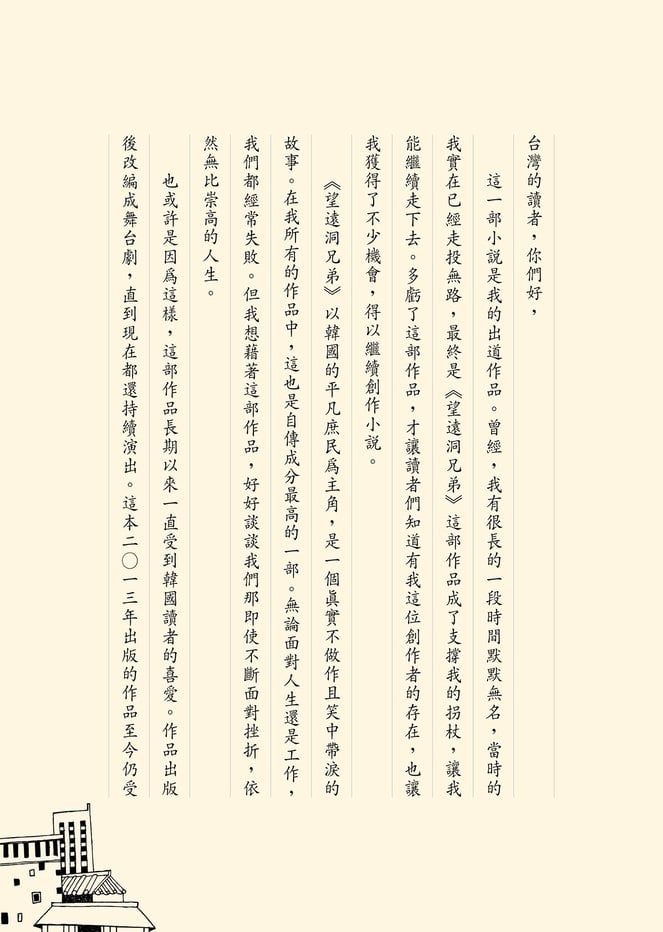 台灣的讀者，你們好，
這一部小說是我的出道作品。曾經，我有很長的一段時間默默無名，當時的
我實在已經走投無路，最終是《望遠洞兄弟》這部作品成了支撐我的拐杖，讓我
能繼續走下去。多虧了這部作品，才讓讀者們知道有我這位創作者的存在，也讓
我獲得了不少機會，得以繼續創作小說。
《望遠洞兄弟》以韓國的平凡庶民爲主角，是一個眞實不做作且笑中帶淚的
故事。在我所有的作品中，這也是自傳成分最高的一部。無論面對人生還是工作，
我們都經常失敗。但我想藉著這部作品，好好談談我們那即使不斷面對挫折，依
然無比崇高的人生。
也或許是因爲這樣，這部作品長期以來一直受到韓國讀者的喜愛。作品出版
後改編成舞台劇，直到現在都還持續演出。這本二〇一三年出版的作品至今仍受